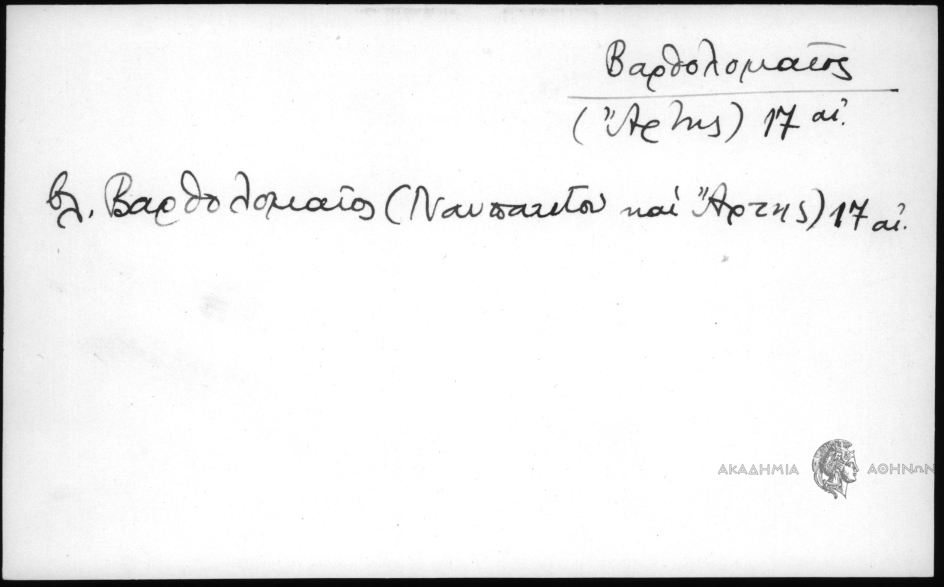 Βαρθολομαῖος
(Ἄρτης) 17 αἰ.
βλ. Βαρθολομαῖος (Ναυπάκτου καὶ Ἄρτης) 17 αἰ.
ΑΚΑΔΗΜΙΑ ΑΘΗΝΩΝ